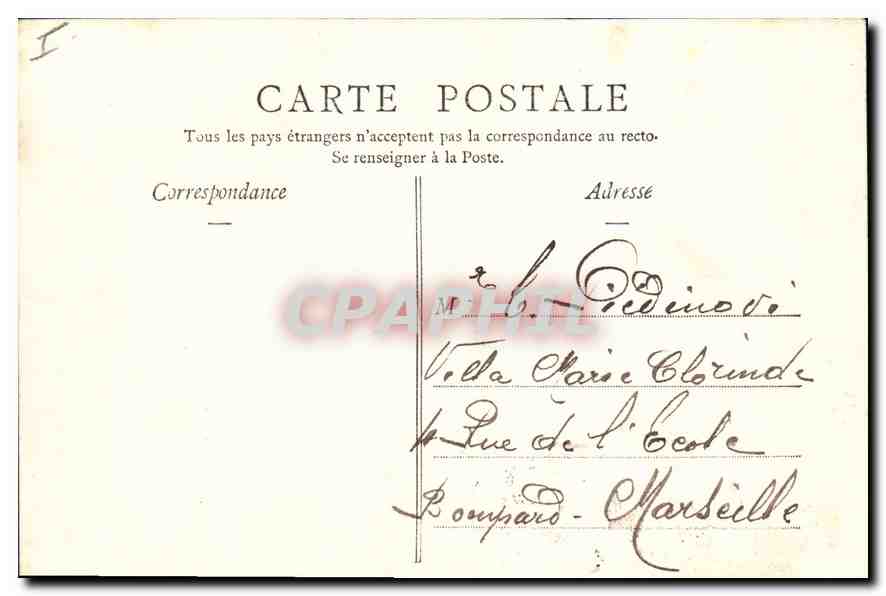 I
CARTE POSTALE
Tous les pays étrangers n'acceptent pas la correspondance au recto.
Se renseigner à la Poste.
Correspondance
Adresse
CPAPHIL
Mr
Villa Marie Clorinde
4 Rue de l'Ecole
Bompard - Marseille